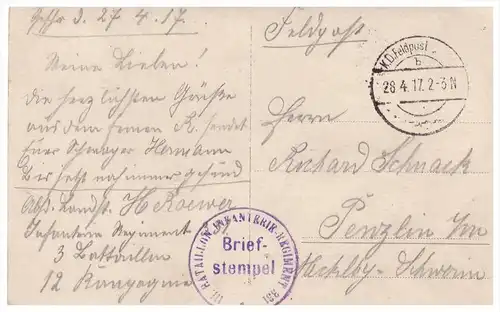 d. 27 4. 17.
Meine Lieben!
die herzlichsten Grüße
aus dem fernen R. sendet
Euer Schwager Hermann
Bis jetzt noch immer gesund
Abs. Landst. H Roewer
Infanterie Regiment
3 Battaillon
12 Kompagnie
Feldpost
K.D.Feldpost
b
28.4.17. 2-3 N
Herrn
Richard Schnack
Penzlin i/m
Mecklbg-Schwerin
III. BATAILLON INFANTERIE-REGIMENT
Brief-
stempel